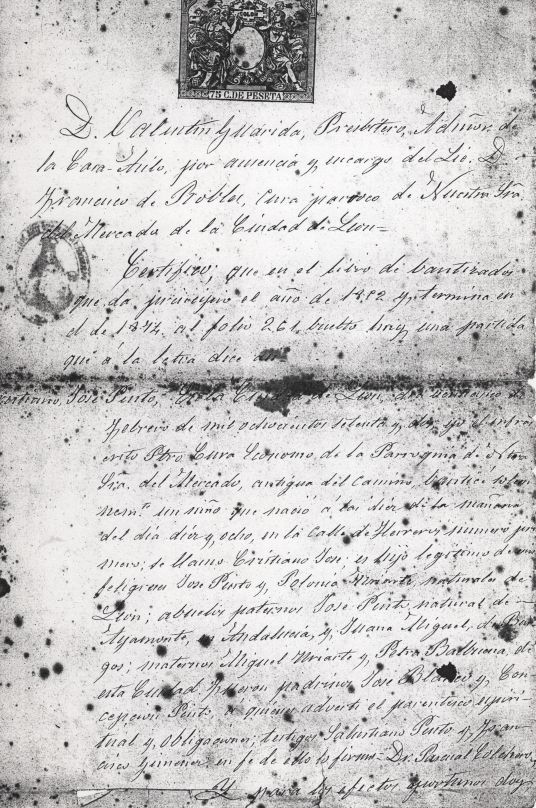 75 C. DE PESETA
D. Valentín Guarida, Presbítero, Admõr. de
la Casa-Asilo, por ausencia y encargo del Lic. D.
Francisco de Robles, Cura párroco de Nuestra Sra.
del Mercado de la Ciudad de León=
Certifico, que en el libro de bautizados
que da principio el año de 1852 y termina en
el de 1874, al folio 261 vuelto hay una partida
que á la letra dice así
José Pinto, En la Ciudad de León, á
febrero de mil ochocientos setenta y dos, yo el infras
crito Pbro. Cura Ecónomo de la Parroquia de Ntra.
Sra. del Mercado, antigua del Camino, bauticé solem
nemte. un niño que nació á las diez de la mañana
del día diez y ocho, en la calle de Herreros, número pri
mero; se llamó Cristiano José: es hijo legítimo de mis
feligreses José Pinto y Polonia Uriarte, naturales de
León; abuelos paternos José Pinto, natural de
Ayamonte, en Andalucía, y Juana Miguel, de Bur
gos; maternos Miguel Uriarte y Petra Balbuena, de
esta Ciudad. Fueron padrinos José Blanco y Con
cepción Pinto, á quienes advertí el parentesco espiri-
tual y obligaciones; testigos Salustiano Pinto y Fran
cisco Gimenez: en fe de ello lo firmo= Dr. Pascual
Y para los efectos oportunos doy